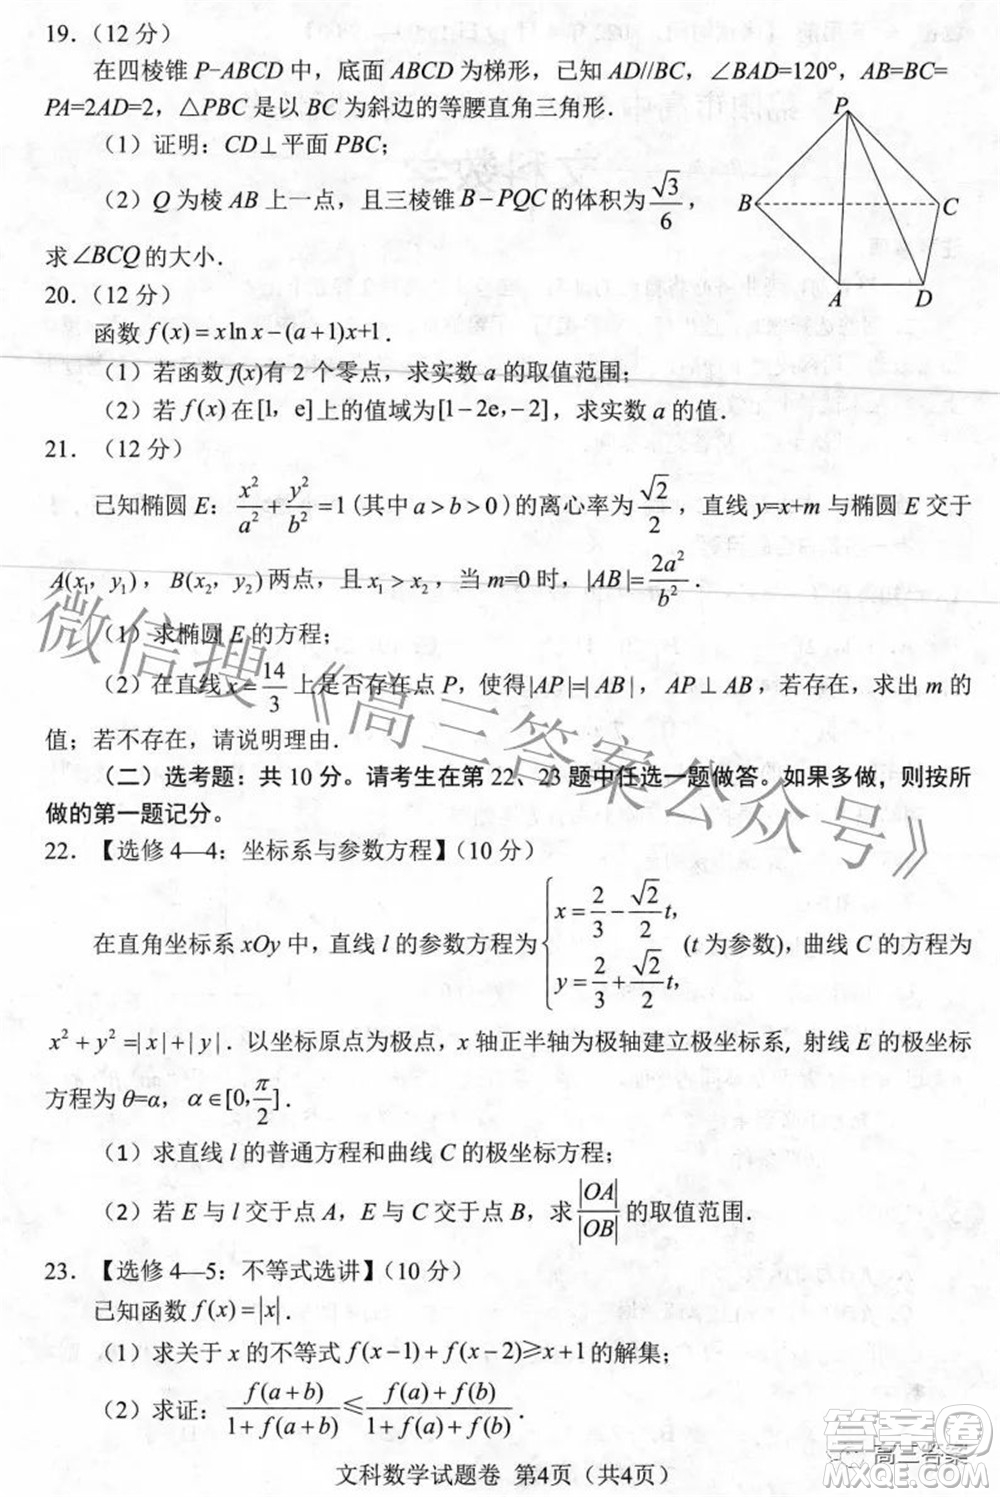 19.（12 分）
在四棱锥 P-ABCD 中，底面 ABCD 为梯形，已知 AD//BC，∠BAD=120°，AB=BC=
PA=2AD=2，△PBC 是以 BC 为斜边的等腰直角三角形．
（1）证明：CD⊥平面 PBC；
（2）Q 为棱 AB 上一点，且三棱锥 B-PQC 的体积为 √3/6，
求∠BCQ 的大小．
P
B
C
A
D
20.（12 分）
函数 f(x)=xlnx-(a+1)x+1．
（1）若函数 f(x)有 2 个零点，求实数 a 的取值范围；
（2）若 f(x)在[1，e]上的值域为[1-2e,-2]，求实数 a 的值．
21.（12 分）
已知椭圆 E：x²/a²+y²/b²=1(其中 a>b>0)的离心率为 √2/2，直线 y=x+m 与椭圆 E 交于
A(x₁，y₁)，B(x₂，y₂)两点，且 x₁>x₂，当 m=0 时，|AB|=2a²/b²．
（1）求椭圆 E 的方程；
（2）在直线 x=14/3 上是否存在点 P，使得|AP|=|AB|，AP⊥AB，若存在，求出 m 的
值；若不存在，请说明理由．
（二）选考题：共 10 分。请考生在第 22、23 题中任选一题做答。如果多做，则按所
做的第一题记分。
22.【选修 4—4：坐标系与参数方程】（10 分）
在直角坐标系 xOy 中，直线 l 的参数方程为 {x=2/3-√2/2t, y=2/3+√2/2t, (t 为参数)，曲线 C 的方程为
x²+y²=|x|+|y|．以坐标原点为极点，x 轴正半轴为极轴建立极坐标系, 射线 E 的极坐标
方程为 θ=α，α∈[0,π/2]．
（1）求直线 l 的普通方程和曲线 C 的极坐标方程；
（2）若 E 与 l 交于点 A，E 与 C 交于点 B，求|OA|/|OB|的取值范围．
23.【选修 4—5：不等式选讲】（10 分）
已知函数 f(x)=|x|．
（1）求关于 x 的不等式 f(x-1)+f(x-2)≥x+1 的解集；
（2）求证：f(a+b)/1+f(a+b)≤f(a)+f(b)/1+f(a)+f(b)．
文科数学试题卷 第4页（共4页）
微信搜《高三答案公众号》
高三答案
答案卷
MXQE.COM